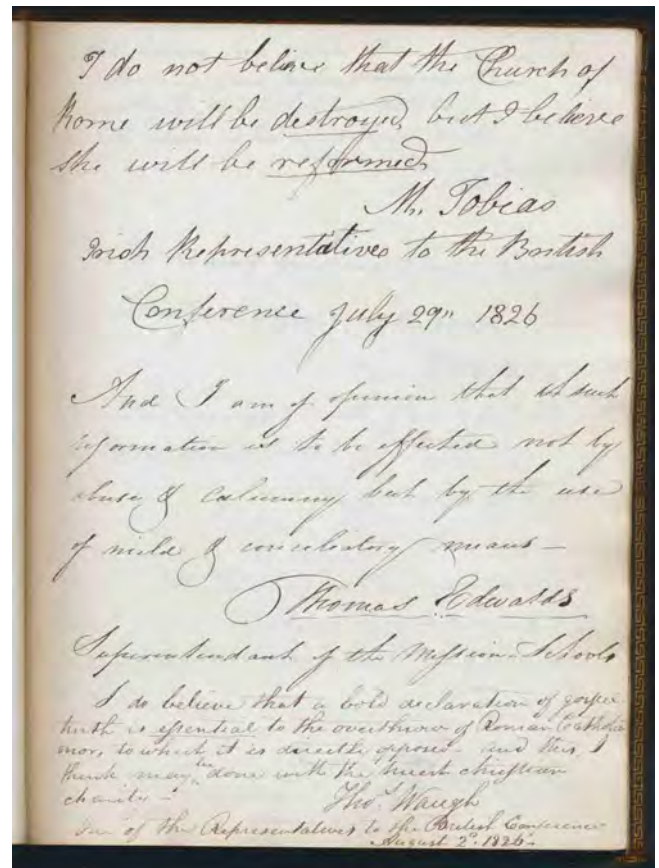 I do not believe that the Church of
Rome will be destroyed, but I believe
she will be reformed
M. Tobias
Irish Representatives to the British
Conference July 29th 1826
And I am of opinion that such
reformation is to be effected not by
abuse & calumny but by the use
of mild & conciliatory means —
Thomas Edwards
Superintendant of the Mission Schools
I do believe that a bold declaration of gospel
truth is essential to the overthrow of Roman Catholi
to which it is directly opposed — and this I
think may be done with the truest christian
charity —
Thos. Waugh
of the Representatives to the British Conference
August 2d. 1826